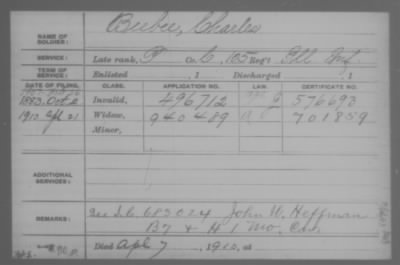 NAME OF SOLDIER: Bieber, Charles
SERVICE: Late rank, P Co. C, 105 Reg't Ill Inf.
TERM OF SERVICE: Enlisted , 1 Discharged , 1
DATE OF FILING. CLASS. APPLICATION NO. LAW. CERTIFICATE NO.
1883. Oct 2 Invalid, 496,712 576693
1910 Apl 21 Widow, 940489 701859
Minor,
ADDITIONAL SERVICES:
REMARKS: See S.C. 683024 John W. Hoffman
B 7 & H 1 Mo. Cav.
Died Apl 7, 1910, at